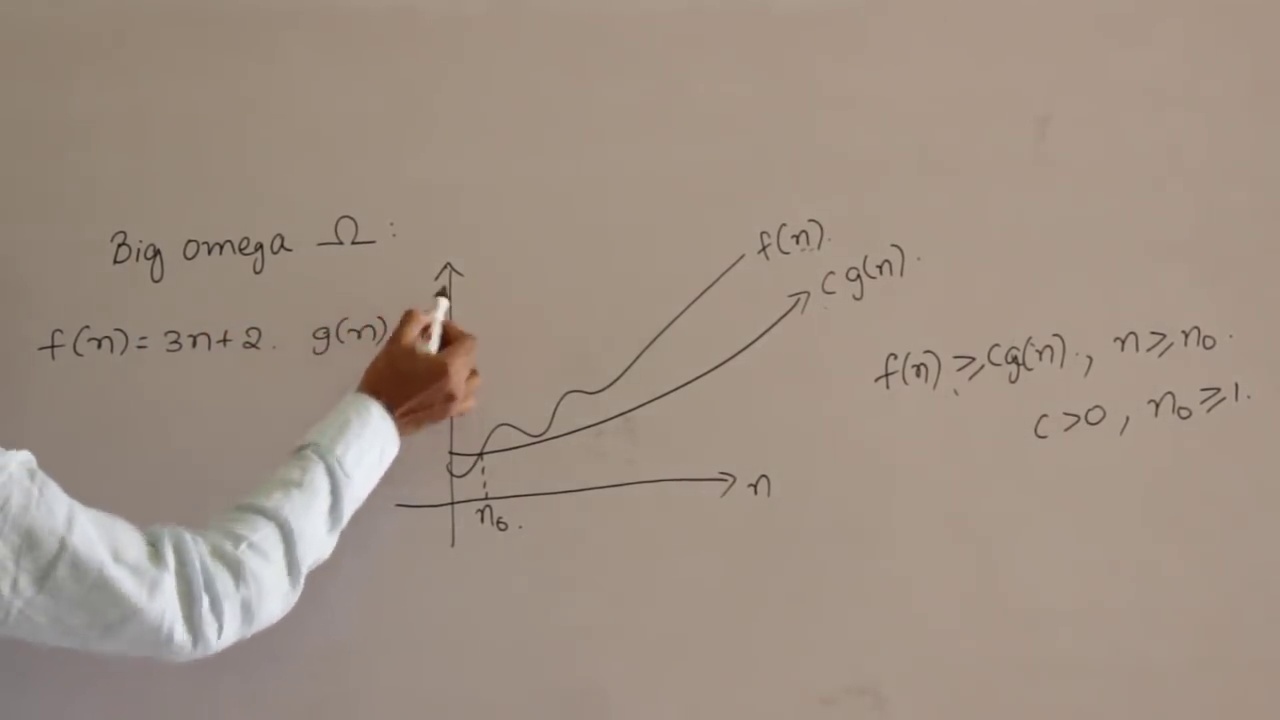 Big omega Ω :
f(n) = 3n+2. g(n)
f(n).
c g(n).
n
n₀.
f(n) ≥ cg(n)., n ≥ n₀.
c > 0, n₀ ≥ 1.